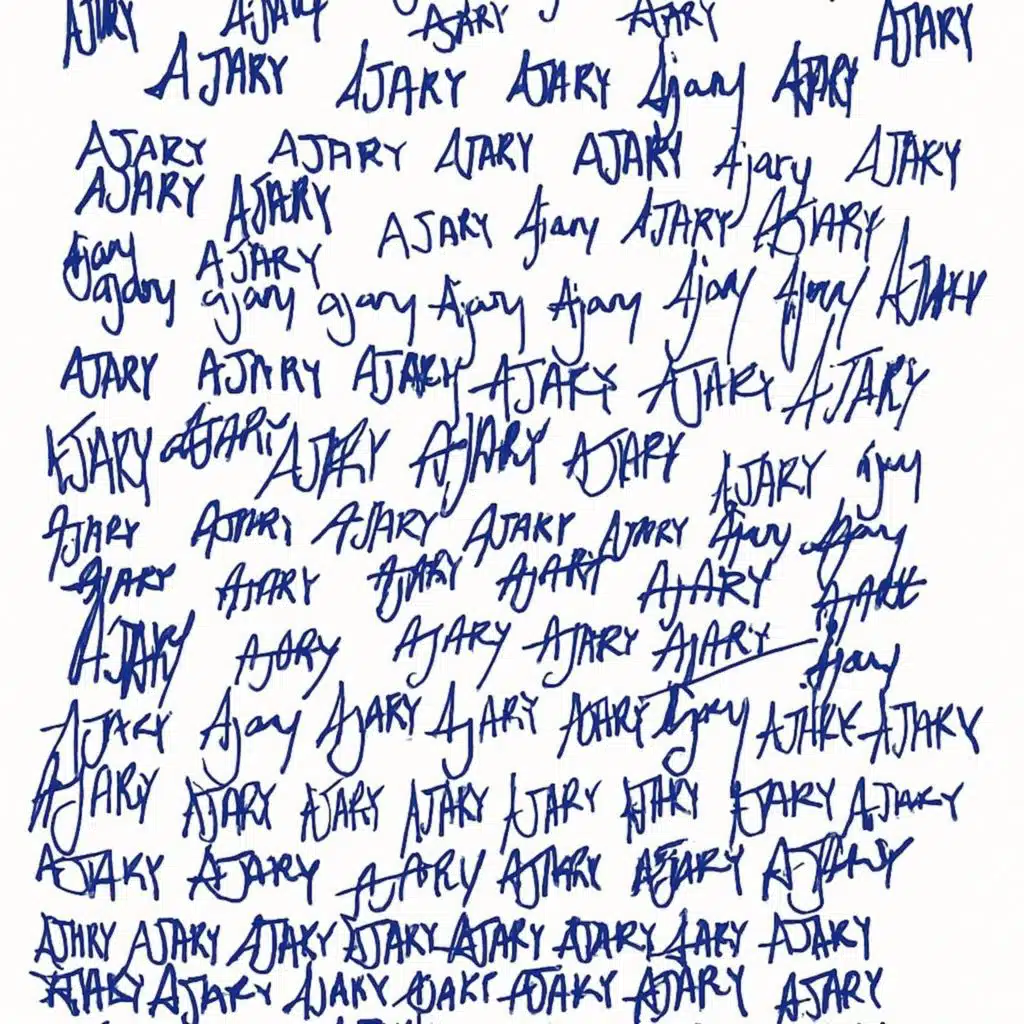 AJARY AJARY AJARY AJARY AJARY
AJARY AJARY AJARY Ajary AJARY
AJARY AJARY AJARY AJARY Ajary AJARY
AJARY AJARY AJARY Ajary AJARY AJARY
Ajary AJARY
ajary ajary ajary Ajary Ajary Ajary Ajary AJARY
AJARY AJARY AJARY AJARY AJARY AJARY
AJARY AJARY AJARY AJARY AJARY AJARY ajary
AJARY AJARY AJARY AJARY AJARY Ajary Ajary
AJARY AJARY AJARY AJARY AJARY AJARY
AJARY AJARY AJARY AJARY AJARY Ajary
AJARY Ajary AJARY AJARY AJARY Ajary AJARY AJARY
AJARY AJARY AJARY AJARY AJARY AJARY AJARY AJARY
AJARY AJARY AJARY AJARY AJARY AJARY
AJARY AJARY AJARY AJARY AJARY AJARY JARY AJARY
AJARY AJARY AJARY AJARY AJARY AJARY AJARY